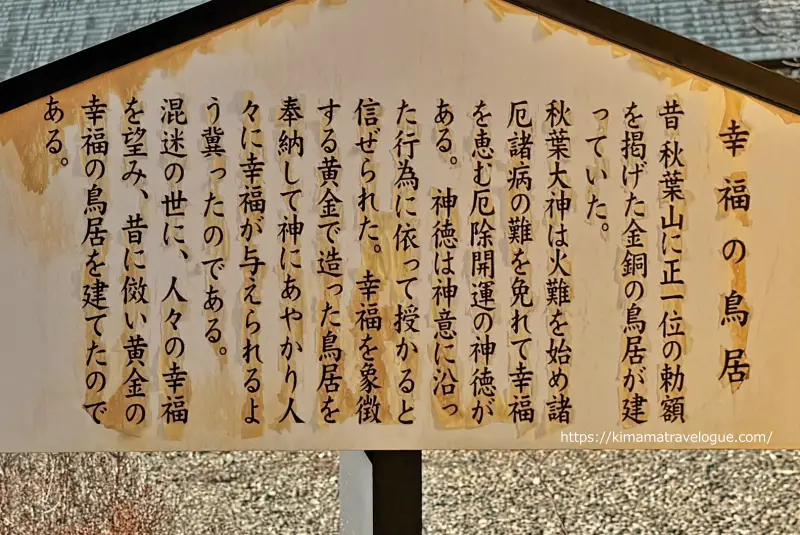 幸福の鳥居
昔 秋葉山に正一位の勅額
を掲げた金銅の鳥居が建
っていた。
秋葉大神は火難を始め諸
厄諸病の難を免れて幸福
を恵む厄除開運の神徳が
ある。神徳は神意に沿っ
た行為に依って授かると
信ぜられた。幸福を象徴
する黄金で造った鳥居を
奉納して神にあやかり人
々に幸福が与えられるよ
う冀ったのである。
混迷の世に、人々の幸福
を望み、昔に倣い黄金の
幸福の鳥居を建てたので
ある。
https://kimamatravelogue.com/